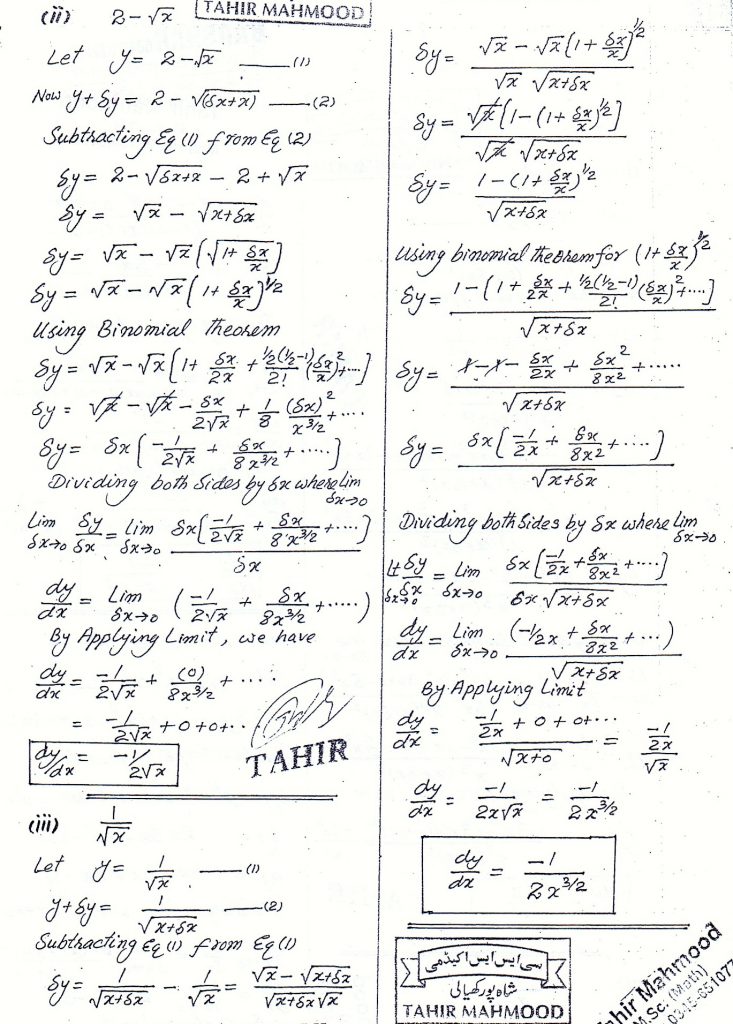 TAHIR MAHMOOD
(ii) 2-√x
Let y = 2-√x ——(1)
Now y+δy = 2 - √(δx+x) ——(2)
Subtracting Eq (1) from Eq (2)
δy = 2-√δx+x - 2 + √x
δy = √x - √x+δx
δy = √x - √x [√1+ δx/x]
δy = √x - √x (1+ δx/x)^1/2
Using Binomial Theorem
δy = √x - √x [1+ δx/2x + ½(½-1)/2! (δx/x)² +....]
δy = √x - √x - δx/2√x + 1/8 (δx)²/x^3/2 + ....
δy = δx (-1/2√x + δx/8x^3/2 + .....]
Dividing both Sides by δx where lim δx→0
Lim δx→0 δy/δx = lim δx→0 δx[-1/2√x + δx/8x^3/2 + ....]/δx
dy/dx = Lim δx→0 (-1/2√x + δx/8x^3/2 + .....)
By Applying Limit, we have
dy/dx = -1/2√x + (0)/8x^3/2 + ....
= -1/2√x + 0+0+..
TAHIR
dy/dx = -1/2√x
(iii) 1/√x
Let y = 1/√x ——(1)
y+δy = 1/√x+δx ——(2)
Subtracting Eq (1) from Eq (1)
δy = 1/√x+δx - 1/√x = √x - √x+δx/√x+δx √x
δy = √x - √x [1+ δx/x]^1/2 / √x √x+δx
δy = √x [1-(1+ δx/x)^1/2] / √x √x+δx
δy = 1-(1+ δx/x)^1/2 / √x+δx
Using binomial theorem for (1+ δx/x)^1/2
δy = 1-[1+ δx/2x + ½(½-1)/2! (δx/x)² +....] / √x+δx
δy = 1-1- δx/2x + δx²/8x² + ..... / √x+δx
δy = δx[-1/2x + δx/8x² + ....] / √x+δx
Dividing both Sides by δx where lim δx→0
Lt δx→0 δy/δx = Lim δx→0 δx[-1/2x + δx/8x² + ....] / δx √x+δx
dy/dx = Lim δx→0 (-1/2x + δx/8x² + ...) / √x+δx
By Applying Limit
dy/dx = -1/2x + 0 + 0+... / √x+0 = -1/2x / √x
dy/dx = -1/2x√x = -1/2x^3/2
dy/dx = -1/2x^3/2
سی ایس ایس اکیڈمی
شاہ پور کھیالی
TAHIR MAHMOOD
hir Mahmood
M.Sc. (Math)
0345-651077